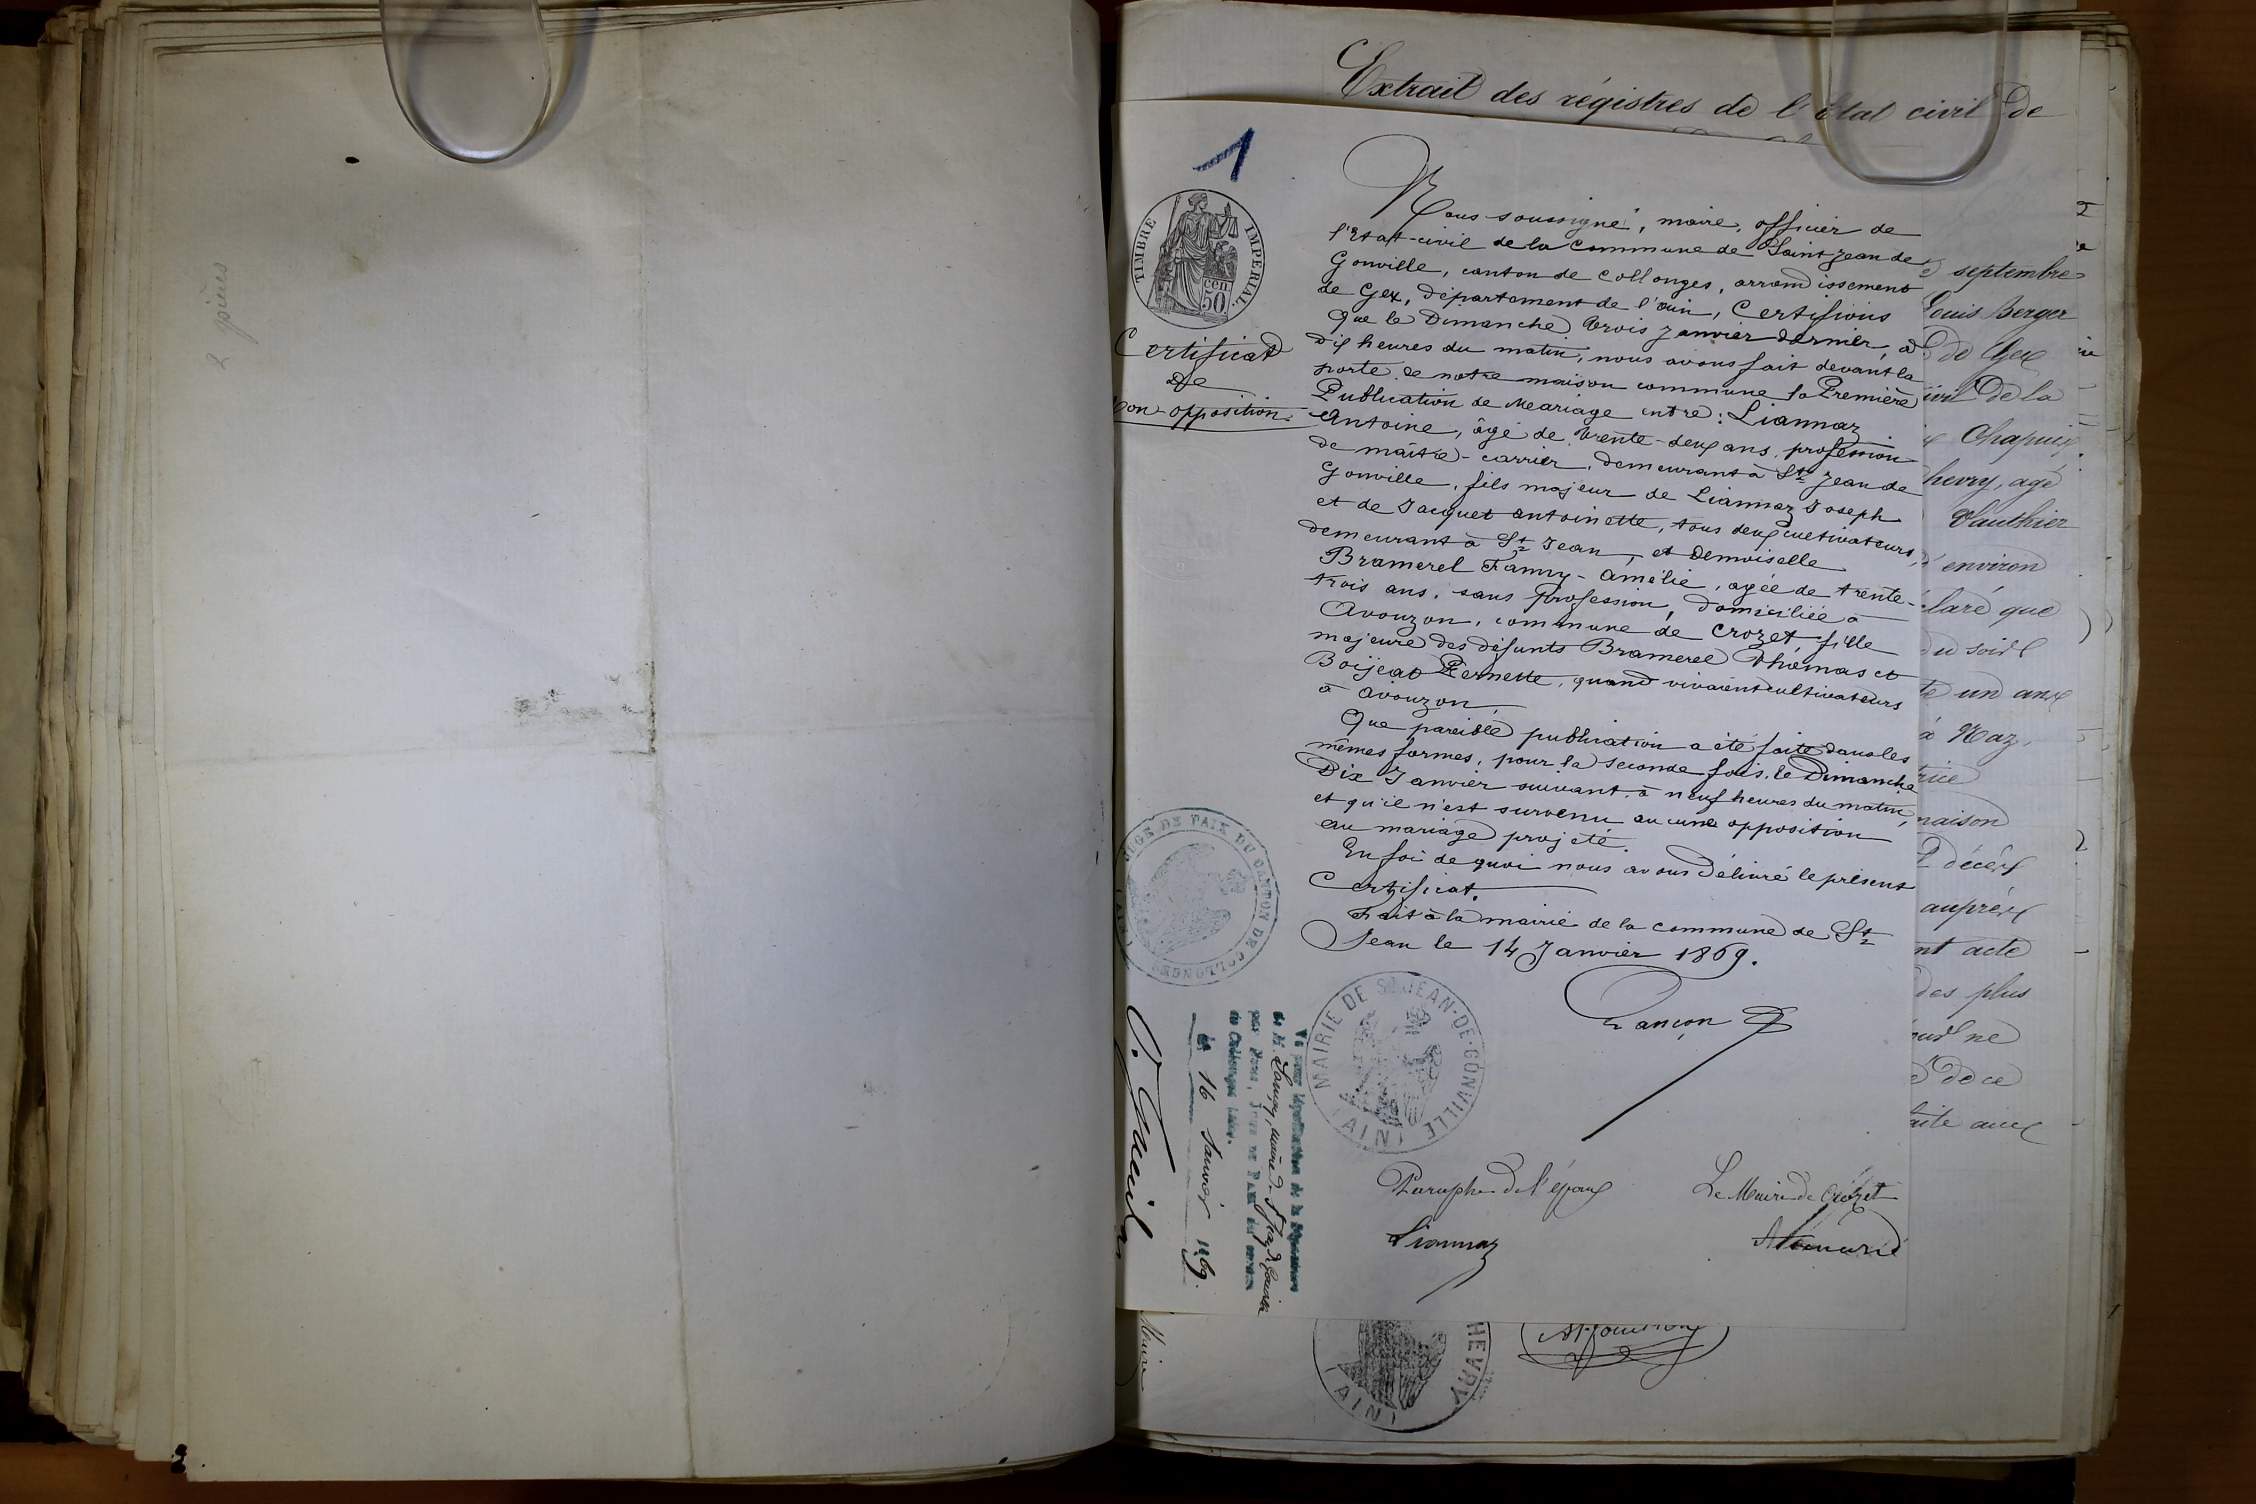 2 pièces
Extrait des régistres de l'Etat civil de
1
TIMBRE IMPERIAL
cen. 50
Certificat
de
Non-opposition
Nous soussigné, maire, officier de
l'Etat-civil de la commune de Saint Jean de
Gonville, canton de Collonges, arrondissement
de Gex, département de l'ain, Certifions
Que le Dimanche trois Janvier dernier, à
dix heures du matin, nous avons fait devant la
porte de notre maison commune la Première
Publication de Mariage entre : Liannaz
Antoine, âgé de trente-deux ans, profession
de maître-carrier, demeurant à St Jean de
Gonville, fils majeur de Liannaz Joseph
et de Jacquet antoinette, tous deux cultivateurs
demeurant à St Jean, et Demoiselle
Bramerel Fanny-Amélie, agée de trente-
trois ans, sans profession, domiciliée à
Avouzon, commune de Crozet fille
majeure des défunts Bramerel Thomas et
Boijeat Pernette, quand vivaient cultivateurs
à Avouzon,
Que pareille publication a été faite dans les
mêmes formes, pour la seconde fois, le Dimanche
Dix Janvier suivant à neuf heures du matin,
et qu'il n'est survenu aucune opposition
au mariage projeté.
En foi de quoi nous avons délivré le présent
Certificat.
Fait à la mairie de la commune de St
Jean le 14 Janvier 1869.
Lançon
MAIRIE DE ST JEAN-DE-GONVILLE
(AIN)
JUGE DE PAIX DU CANTON DE COLLONGES
(AIN)
Vu pour légalisation de la Signature
de M. Lançon, maire de St Jean de Gonville
par Nous, JUGE DE PAIX du canton
de Collonges (Ain).
le 16 Janvier 1869.
Paraphe de l'époux
Liannaz
Le Maire de Crozet
septembre
Louis Berger
de Gex
civil De la
Chapuis
Chevry, agé
Vauthier
environ
claré que
du soir
un ans
à Naz,
maison
décès
auprès
nt acte
des plus
ne
de ce
aite avec
Maire
CHEVRY
(AIN)